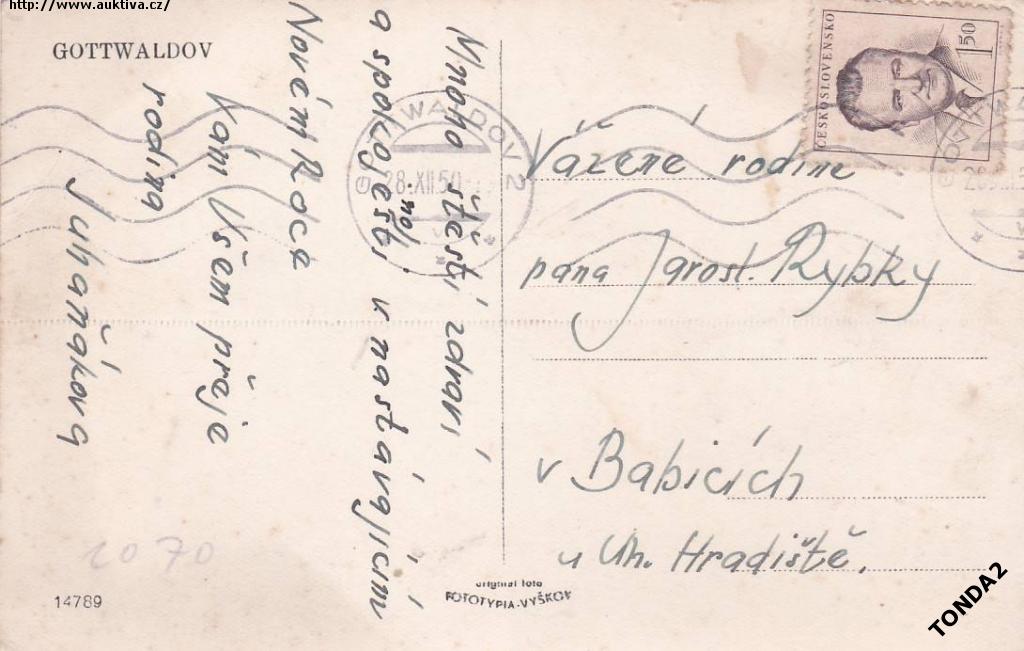 http://www.auktiva.cz/
GOTTWALDOV
Mnoho štěstí zdraví
a spokojenosti v nastávajícím
Novém Roce
Vám Všem přeje
rodina
Juhaňákova
GOTTWALDOV 2
28.XII.50
ČESKOSLOVENSKO
1 50
Vážené rodině
pana Jarosl. Rybky
v Babicích
u Uh. Hradiště.
2070
14789
original foto
FOTOTYPIA-VYŠKOV
TONDA2